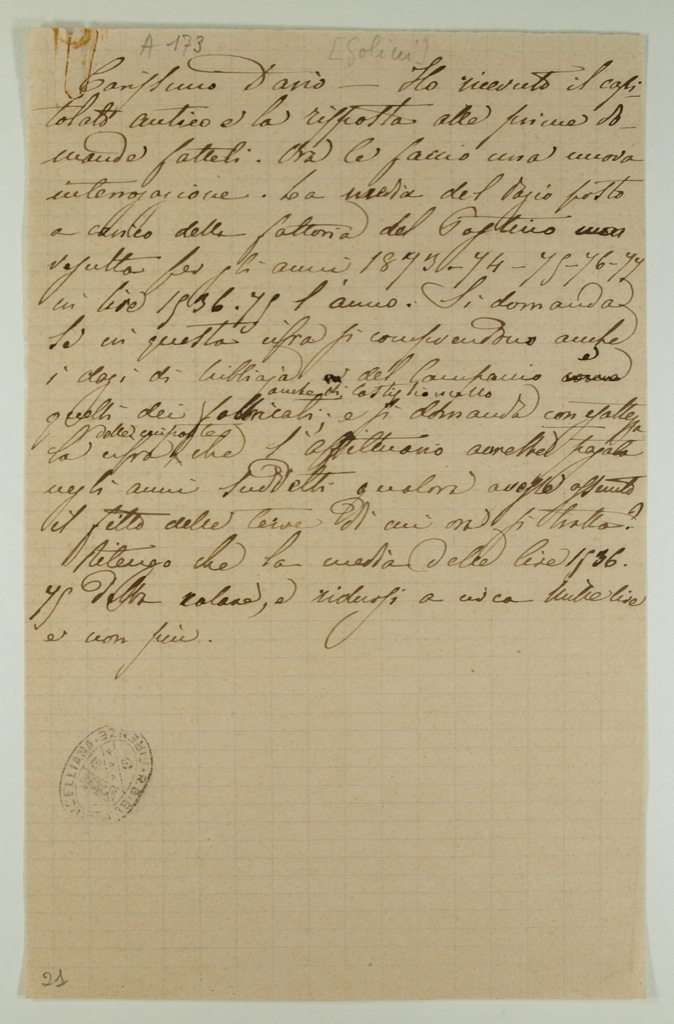 A 173
[Golini]
Carissimo Dario — Ho ricevuto il capi-
tolato antico e la risposta alle prime do-
mande fatteli. Ora le faccio una nuova
interrogazione. La media del dazio posto
a carico della fattoria del
resulta per gli anni 1873-74-75-76-77
in lire 1536.75 l'anno. Si domanda
se in questa cifra si comprendono anche
i dazi di Bibbiaja del Gampanio e
anche di Castiglioncello
quelli dei fabbricati; e si domanda con esattezza
delle imposte
la cifra che l'affittuario avrebbe pagata
negli anni suddetti qualora avesse assunto
il fitto delle terre di cui ora si tratta?
Ritengo che la media delle lire 1536.
75 debba calare, e ridursi a circa mille lire
e non più.
21